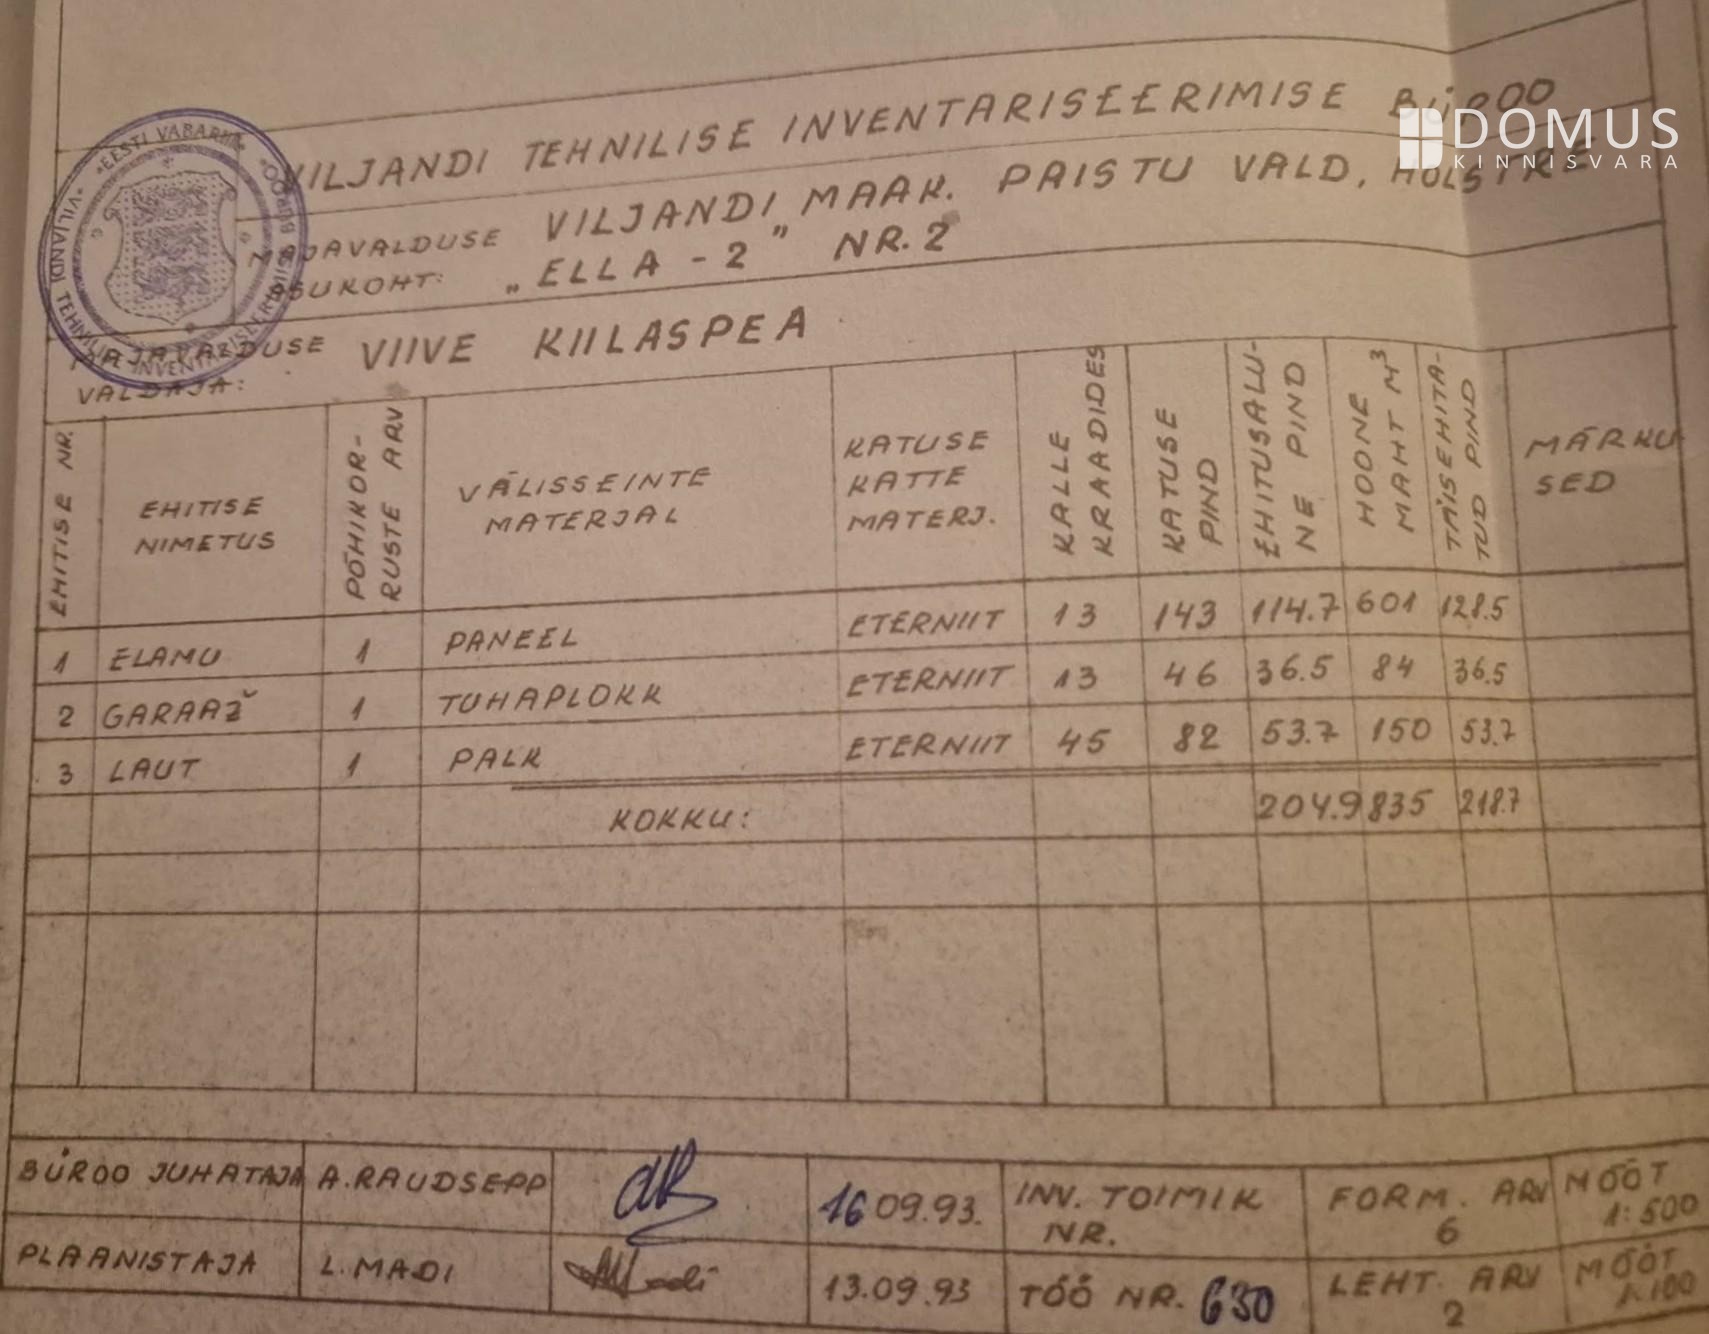 VILJANDI TEHNILISE INVENTARISEERIMISE BÜROO
DOMUS
KINNISVARA
EESTI VABARIIK
VILJANDI TEHNILISE INVENTARISEERIMISE BÜROO
MAJAVALDUSE ASUKOHT: VILJANDI MAAK. PAISTU VALD, HOLSTRE
„ELLA - 2" NR. 2
MAJAVALDUSE VALDAJA: VIIVE KIILASPEA
EHITISE NR. EHITISE NIMETUS PÕHIKORRUSTE ARV VÄLISSEINTE MATERJAL KATUSE KATTE MATERJ. KALLE KRAADIDES KATUSE PIND EHITUSALU-NE PIND HOONE MAHT M³ TÄISEHITA-TUD PIND MÄRKU SED
1 ELAMU 1 PANEEL ETERNIIT 13 143 114.7 601 128.5
2 GARAAŽ 1 TUHAPLOKK ETERNIIT 13 46 36.5 84 36.5
3 LAUT 1 PALK ETERNIIT 45 82 53.7 150 53.7
KOKKU: 204.9 835 218.7
BÜROO JUHATAJA A.RAUDSEPP 16 09.93. INV. TOIMIK NR. FORM. ARV 6 MÕÕT 1:500
PLAANISTAJA L.MADI 13.09.93 TÖÖ NR. 630 LEHT. ARV 2 MÕÕT 1:100